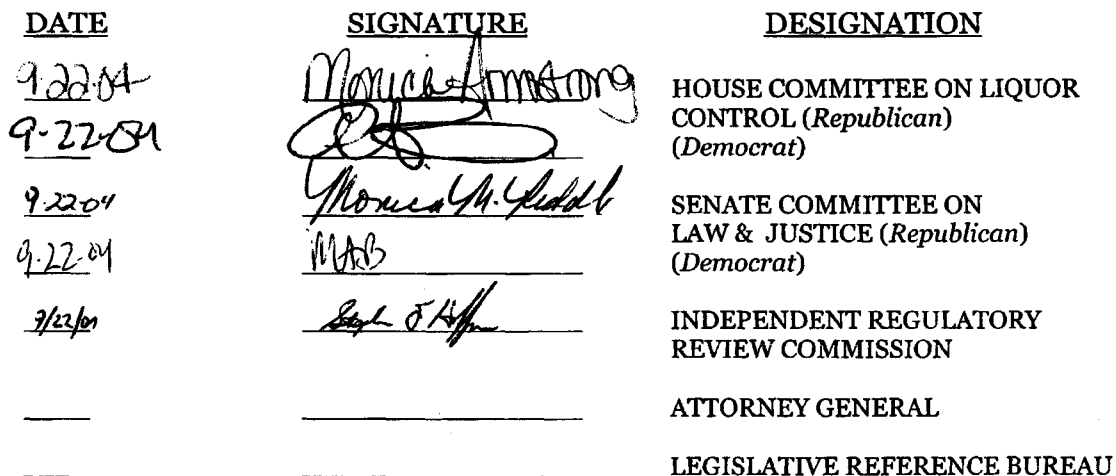 DATE SIGNATURE DESIGNATION
9.22.04 Monica Armstrong HOUSE COMMITTEE ON LIQUOR
9-22-04 CONTROL (Republican)
(Democrat)
9.22.04 Monica M. SENATE COMMITTEE ON
LAW & JUSTICE (Republican)
9.22.04 MAB (Democrat)
9/22/04 INDEPENDENT REGULATORY
REVIEW COMMISSION
ATTORNEY GENERAL
LEGISLATIVE REFERENCE BUREAU